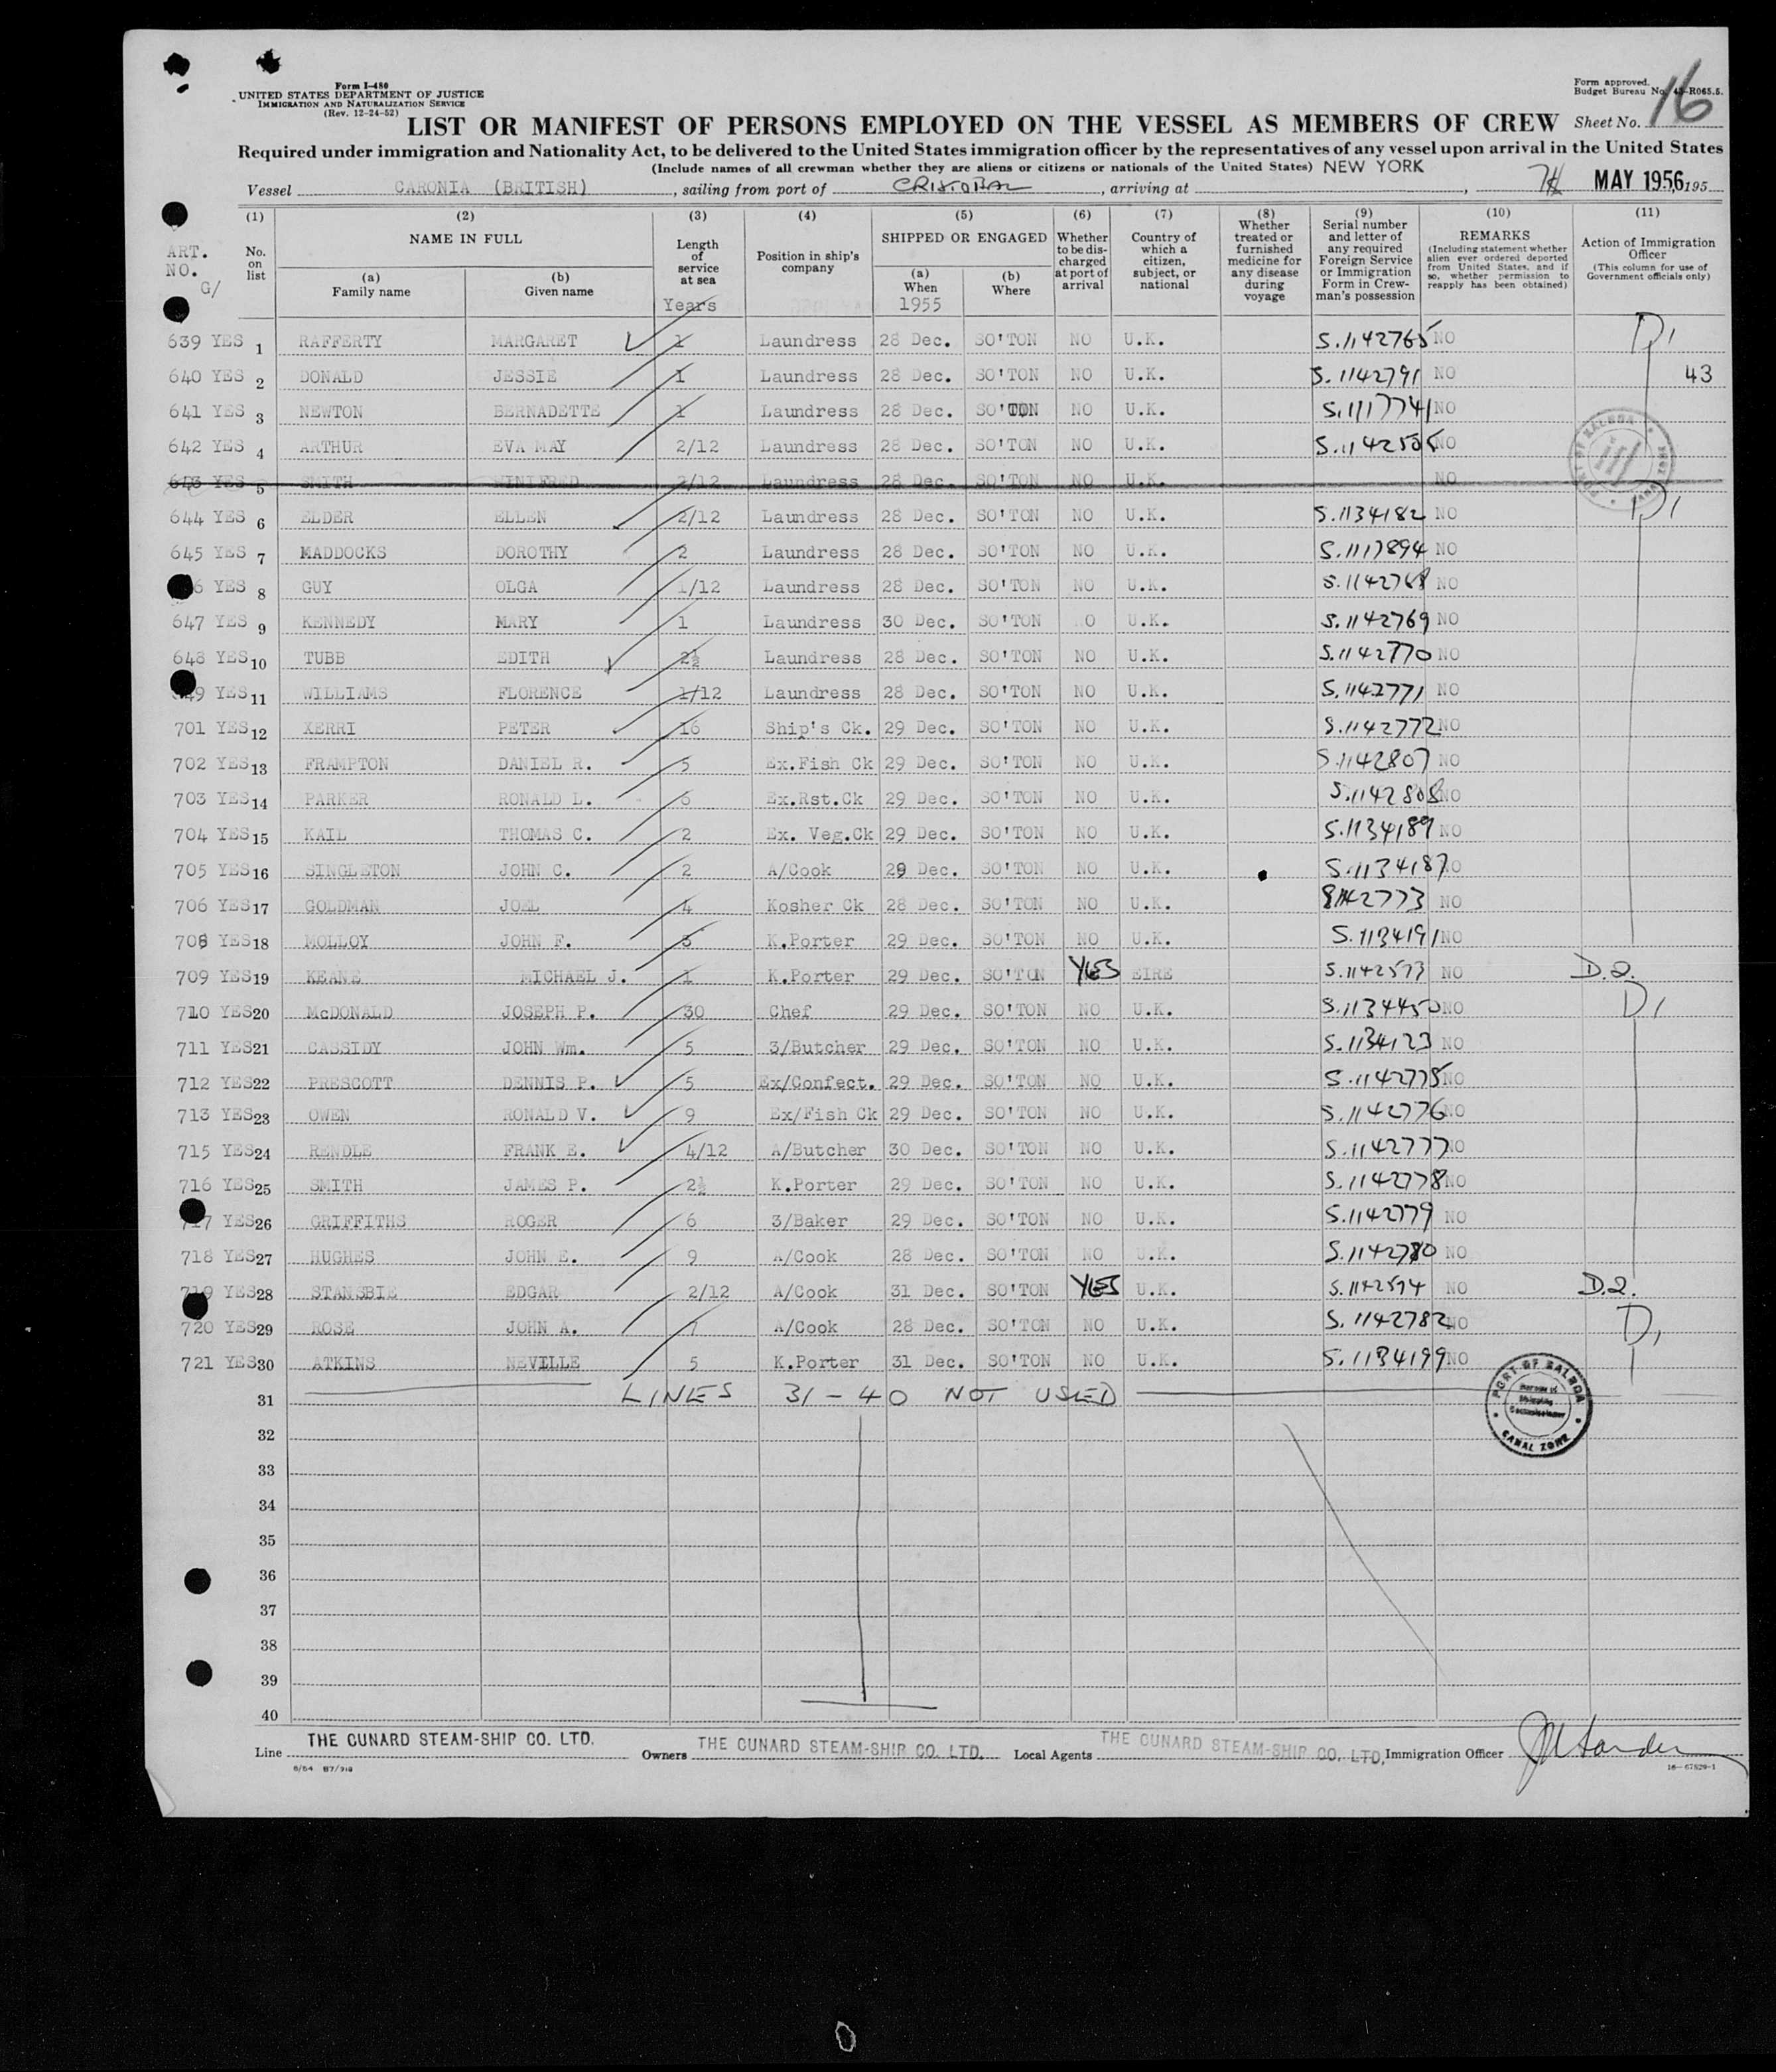 Form I-480
UNITED STATES DEPARTMENT OF JUSTICE
IMMIGRATION AND NATURALIZATION SERVICE
(Rev. 12-24-52)
Form approved.
Budget Bureau No. 43-R065.5.
LIST OR MANIFEST OF PERSONS EMPLOYED ON THE VESSEL AS MEMBERS OF CREW Sheet No. 16
Required under immigration and Nationality Act, to be delivered to the United States immigration officer by the representatives of any vessel upon arrival in the United States
(Include names of all crewman whether they are aliens or citizens or nationals of the United States) NEW YORK
Vessel CARONIA (BRITISH), sailing from port of CRISTOBAL, arriving at , 7th MAY 1956, 195
(1) (2) (3) (4) (5) (6) (7) (8) (9) (10) (11)
ART. NO. G/
No. on list
NAME IN FULL
(a) Family name
(b) Given name
Length of service at sea
Years
Position in ship's company
SHIPPED OR ENGAGED
(a) When
1955
(b) Where
Whether to be discharged at port of arrival
Country of which a citizen, subject, or national
Whether treated or furnished medicine for any disease during voyage
Serial number and letter of any required Foreign Service or Immigration Form in Crewman's possession
REMARKS
(Including statement whether alien ever ordered deported from United States, and if so, whether permission to reapply has been obtained)
Action of Immigration Officer
(This column for use of Government officials only)
639 YES 1 RAFFERTY MARGARET 1 Laundress 28 Dec. SO'TON NO U.K. S.1142765 NO D1
640 YES 2 DONALD JESSIE 1 Laundress 28 Dec. SO'TON NO U.K. S.1142791 NO 43
641 YES 3 NEWTON BERNADETTE 1 Laundress 28 Dec. SO'TON NO U.K. S.1117741 NO
642 YES 4 ARTHUR EVA MAY 2/12 Laundress 28 Dec. SO'TON NO U.K. S.1142505 NO
643 YES 5 SMITH WINIFRED 2/12 Laundress 28 Dec. SO'TON NO U.K. NO
644 YES 6 ELDER ELLEN 2/12 Laundress 28 Dec. SO'TON NO U.K. S.1134182 NO D1
645 YES 7 MADDOCKS DOROTHY 2 Laundress 28 Dec. SO'TON NO U.K. S.1117894 NO
6 YES 8 GUY OLGA 1/12 Laundress 28 Dec. SO'TON NO U.K. S.1142768 NO
647 YES 9 KENNEDY MARY 1 Laundress 30 Dec. SO'TON O U.K. S.1142769 NO
648 YES 10 TUBB EDITH 2½ Laundress 28 Dec. SO'TON NO U.K. S.1142770 NO
49 YES 11 WILLIAMS FLORENCE 1/12 Laundress 28 Dec. SO'TON NO U.K. S.1142771 NO
701 YES 12 XERRI PETER 16 Ship's Ck. 29 Dec. SO'TON NO U.K. S.1142772 NO
702 YES 13 FRAMPTON DANIEL R. 5 Ex.Fish Ck 29 Dec. SO'TON NO U.K. S.1142807 NO
703 YES 14 PARKER RONALD L. 6 Ex.Rst.Ck 29 Dec. SO'TON NO U.K. S.1142808 NO
704 YES 15 KAIL THOMAS C. 2 Ex. Veg.Ck 29 Dec. SO'TON NO U.K. S.1134189 NO
705 YES 16 SINGLETON JOHN C. 2 A/Cook 29 Dec. SO'TON NO U.K. S.1134187 NO
706 YES 17 GOLDMAN JOEL 4 Kosher Ck 28 Dec. SO'TON NO U.K. S1142773 NO
708 YES 18 MOLLOY JOHN F. 3 K.Porter 29 Dec. SO'TON NO U.K. S.1134191 NO
709 YES 19 KEANE MICHAEL J. 1 K.Porter 29 Dec. SO'TON YES EIRE S.1142573 NO D.2.
710 YES 20 McDONALD JOSEPH P. 30 Chef 29 Dec. SO'TON NO U.K. S.1134450 NO D1
711 YES 21 CASSIDY JOHN Wm. 5 3/Butcher 29 Dec. SO'TON NO U.K. S.1134123 NO
712 YES 22 PRESCOTT DENNIS P. 5 Ex/Confect. 29 Dec. SO'TON NO U.K. S.1142775 NO
713 YES 23 OWEN RONALD V. 9 Ex/Fish Ck 29 Dec. SO'TON NO U.K. S.1142776 NO
715 YES 24 RENDLE FRANK E. 4/12 A/Butcher 30 Dec. SO'TON NO U.K. S.1142777 NO
716 YES 25 SMITH JAMES P. 2½ K.Porter 29 Dec. SO'TON NO U.K. S.1142778 NO
717 YES 26 GRIFFITHS ROGER 6 3/Baker 29 Dec. SO'TON NO U.K. S.1142779 NO
718 YES 27 HUGHES JOHN E. 9 A/Cook 28 Dec. SO'TON NO U.K. S.1142780 NO
719 YES 28 STANSBIE EDGAR 2/12 A/Cook 31 Dec. SO'TON YES U.K. S.1142574 NO D.2.
720 YES 29 ROSE JOHN A. 7 A/Cook 28 Dec. SO'TON NO U.K. S.1142782 NO D1
721 YES 30 ATKINS NEVILLE 5 K.Porter 31 Dec. SO'TON NO U.K. S.1134199 NO
31 LINES 31-40 NOT USED
PORT OF BALBOA
Shipping Commissioner
CANAL ZONE
32
33
34
35
36
37
38
39
40
Line THE CUNARD STEAM-SHIP CO. LTD. Owners THE CUNARD STEAM-SHIP CO. LTD. Local Agents THE CUNARD STEAM-SHIP CO. LTD. Immigration Officer
6/54 B7/918
16-67829-1